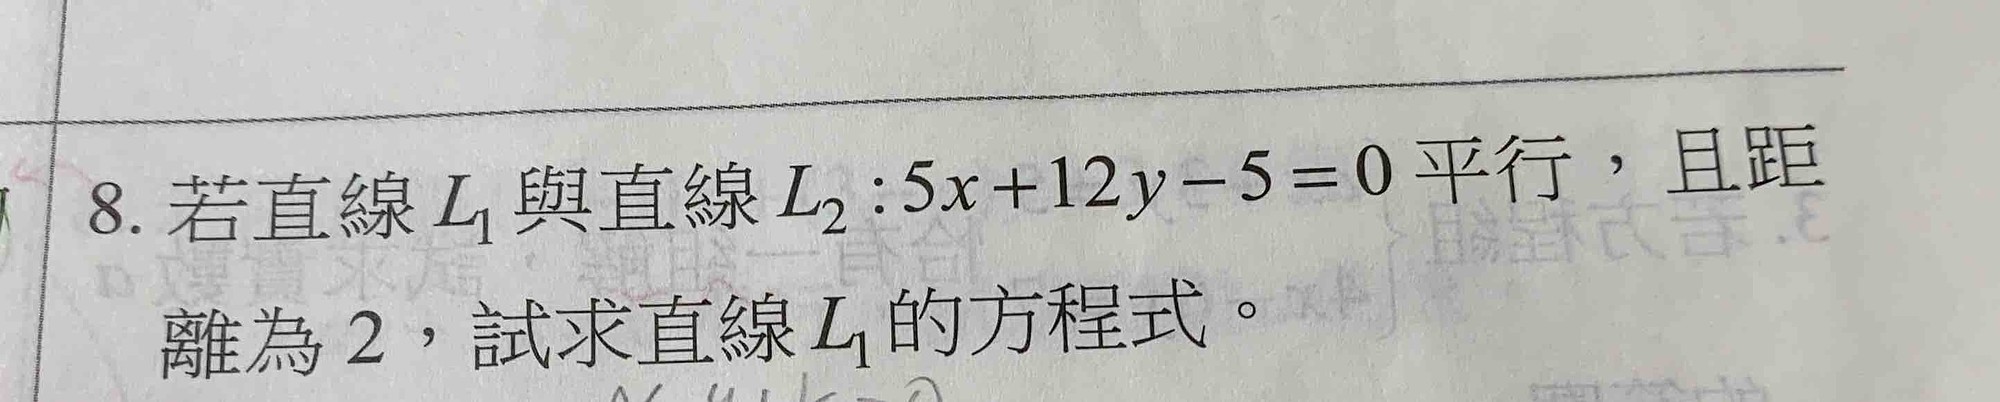 8. 若直線 L₁ 與直線 L₂ : 5x+12y−5=0 平行，且距
離為 2，試求直線 L₁ 的方程式。